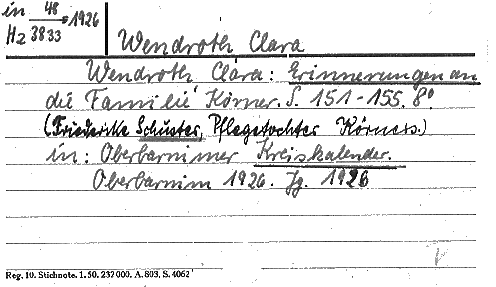 in 48 = 1926
Hz 3833
Wendroth Clara
Wendroth, Clara: Erinnerungen an
die Familie Körner. S. 151-155. 8°
(Friederike Schuster, Pflegetochter Körners.)
in: Oberbarnimer Kreiskalender.
Oberbarnim 1926. Jg. 1926
Reg. 10. Stichnote. 1. 50. 237000. A. 803. S. 4062